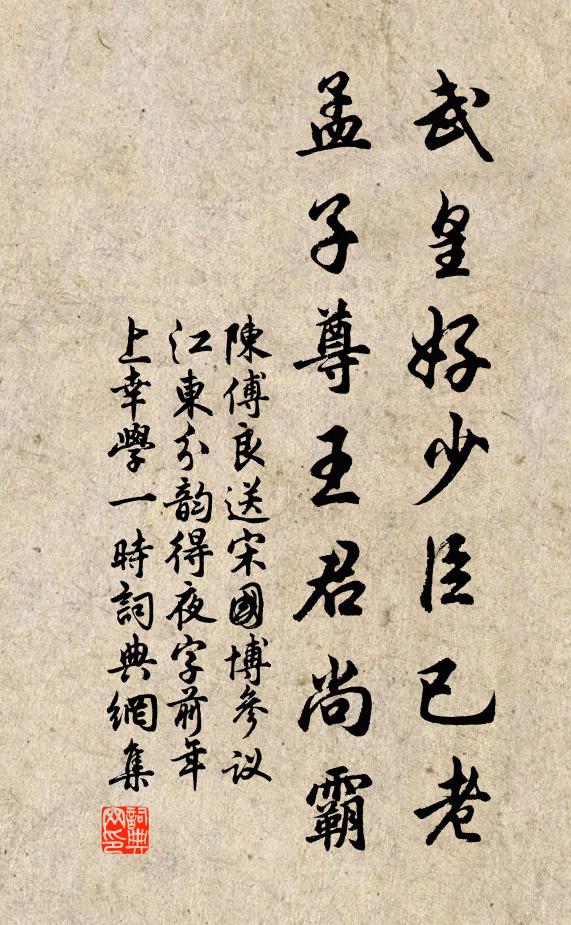 武皇好少臣已老
孟子尊王君尚霸
陳傅良送宋國博參议
江東分韵得夜字前年
上幸學一時詞典網集
詞典网印